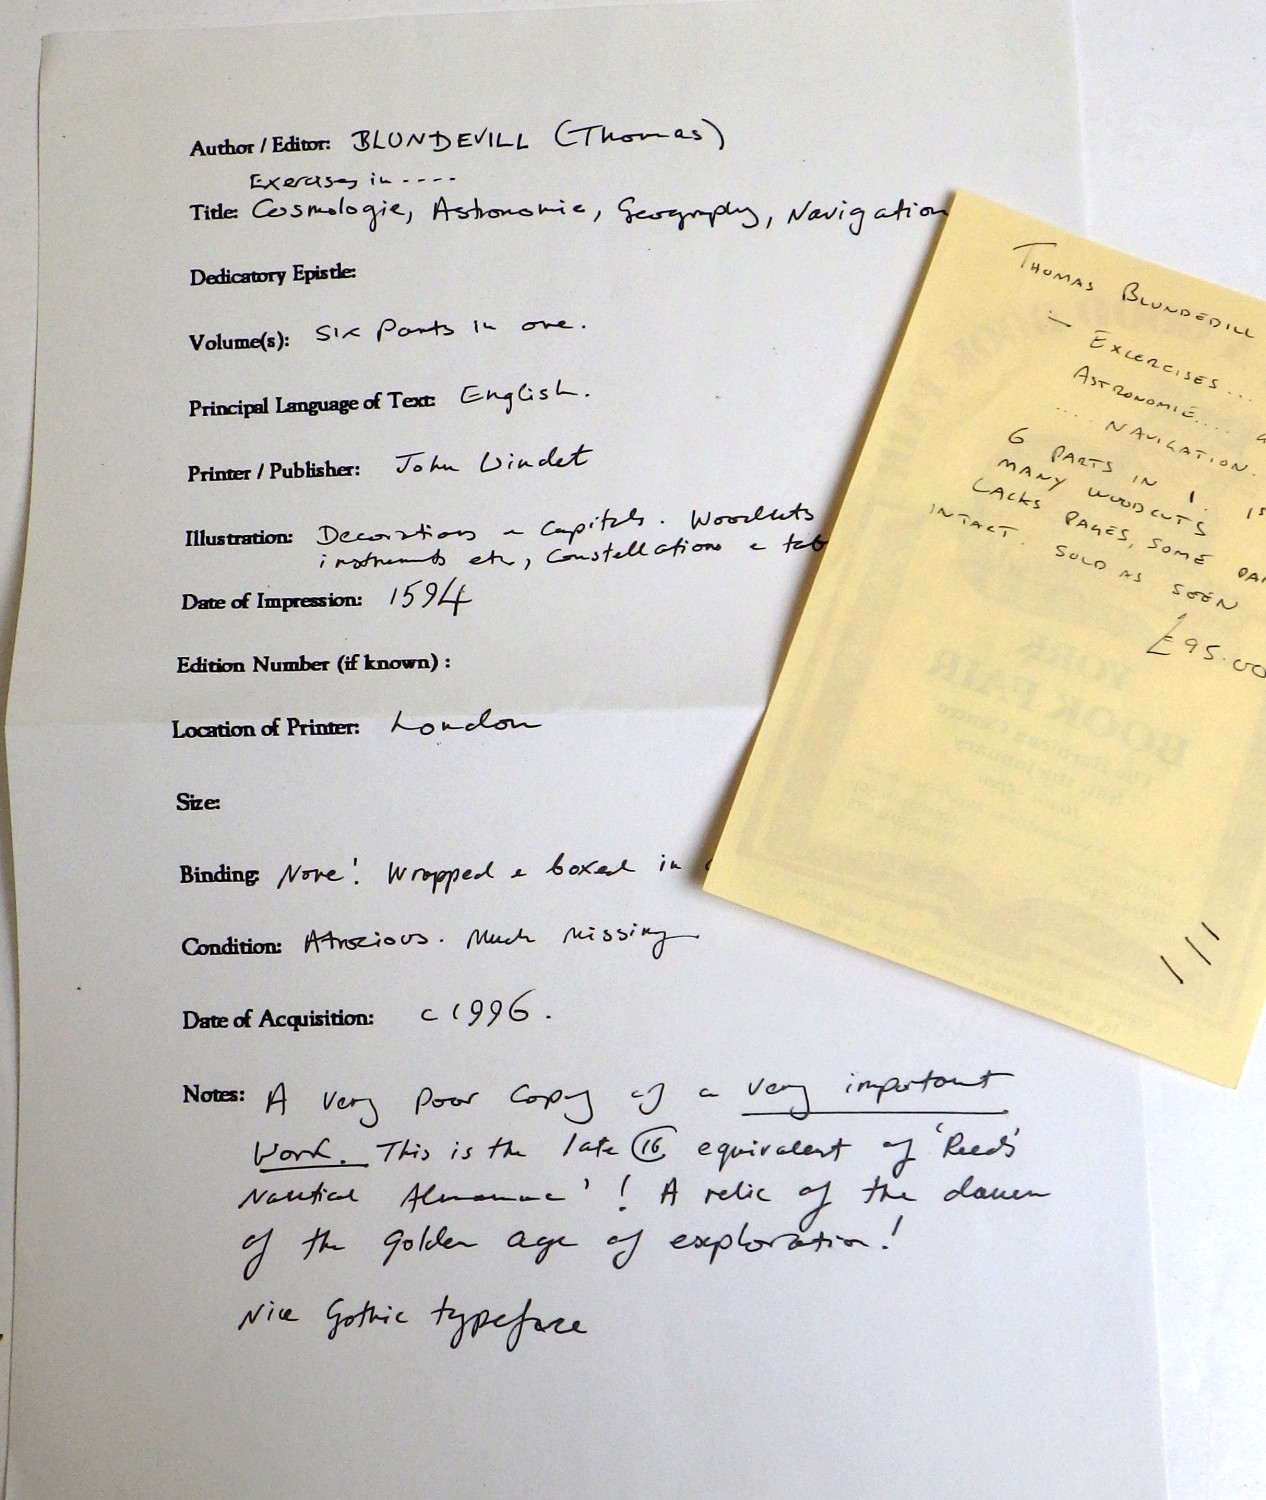 Author / Editor: BLUNDEVILL (Thomas)
Exercises in ----
Title: Cosmologie, Astronomie, Geography, Navigation
Dedicatory Epistle:
Volume(s): Six Parts in one.
Principal Language of Text: English.
Printer / Publisher: John Windet
Illustration: Decorations & Capitals. Woodcuts
instruments etc, Constellations & tab
Date of Impression: 1594
Edition Number (if known) :
Location of Printer: London
Size:
Binding: None! Wrapped & boxed in
Condition: Atrocious. Much Missing
Date of Acquisition: c 1996.
Notes: A very poor copy of a very important
Work. This is the late 16 equivalent of 'Reed's
Nautical Almanac' ! A relic of the dawn
of the golden age of exploration!
Nice Gothic typeface
THOMAS BLUNDEDILL
- EXCERCISES...
ASTRONOMIE....
.... NAVIGATION.
6 PARTS IN 1. 15
MANY WOODCUTS
LACKS PAGES, SOME
INTACT. SOLD AS SEEN
£95.00
YORK
BOOK FAIR